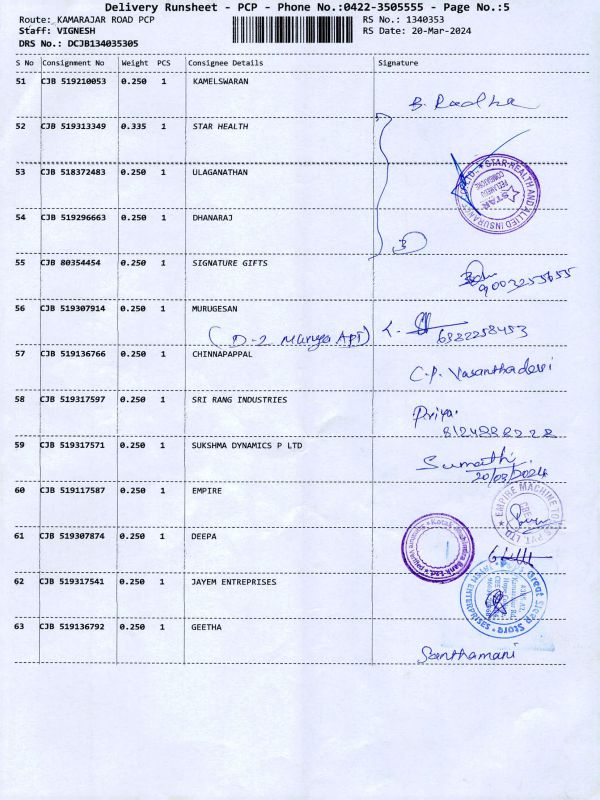 Delivery Runsheet - PCP - Phone No.:0422-3505555 - Page No.:5
Route: KAMARAJAR ROAD PCP RS No.: 1340353
Staff: VIGNESH RS Date: 20-Mar-2024
DRS No.: DCJB134035305
S No Consignment No Weight PCS Consignee Details Signature
51 CJB 519210053 0.250 1 KAMELSWARAN
B. Radha
52 CJB 519313349 0.335 1 STAR HEALTH
STAR HEALTH AND ALLIED INSURANCE
STAR
COIMBATORE
53 CJB 518372483 0.250 1 ULAGANATHAN
54 CJB 519296663 0.250 1 DHANARAJ
55 CJB 80354454 0.250 1 SIGNATURE GIFTS
9003255655
56 CJB 519307914 0.250 1 MURUGESAN
(D-2 Manya Apt)
57 CJB 519136766 0.250 1 CHINNAPAPPAL
C.P. Vasanthadevi
58 CJB 519317597 0.250 1 SRI RANG INDUSTRIES
Priya.
8124888228
59 CJB 519317571 0.250 1 SUKSHMA DYNAMICS P LTD
Sumathi
20/03/2024
60 CJB 519117587 0.250 1 EMPIRE
EMPIRE MACHINE TOOLS PVT. LTD
61 CJB 519307874 0.250 1 DEEPA
Kotak Mahindra Bank Ltd.
62 CJB 519317541 0.250 1 JAYEM ENTREPRISES
Great Sleep Store
63 CJB 519136792 0.250 1 GEETHA
Santhamani